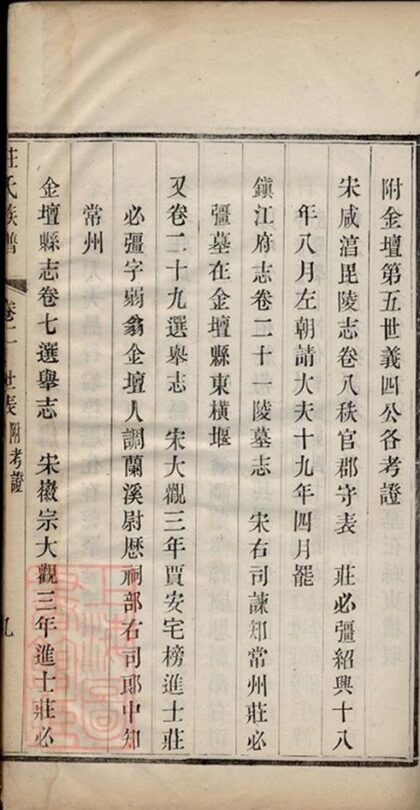 附金壇第五世義四公各考證
宋咸淳毘陵志卷八秩官郡守表　莊必彊紹興十八
年八月左朝請大夫十九年四月罷
鎭江府志卷二十一陵墓志　宋右司諫知常州莊必
彊墓在金壇縣東橫堰
又卷二十九選舉志　宋大觀三年賈安宅榜進士莊
必彊字弱翁金壇人調蘭溪尉歷祠部右司郎中知
常州
金壇縣志卷七選舉志　宋徽宗大觀三年進士莊必
莊氏族譜　卷二　世表附考證　九